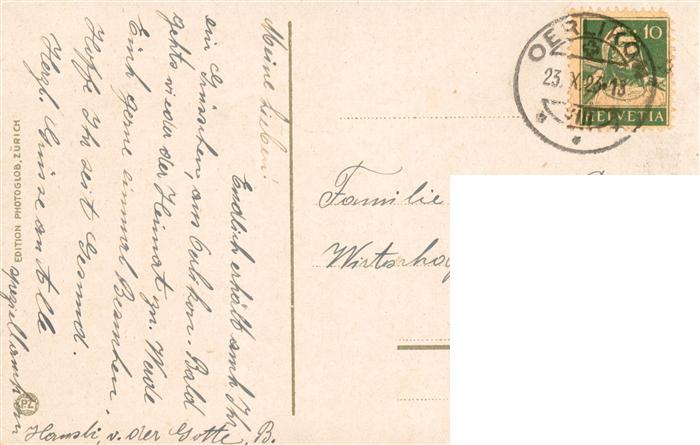 Meine Lieben!
Endlich erhält auch Ihr
ein Grüsschen, aus Oerlikon. Bald
gehts wieder der Heimat zu. Werde
Euch gerne einmal Besuchen.
Hoffe Ihr seit Gesund.
Herzl. Grüsse an Alle
speziell
Hansli, v. der Gotte, B.
EDITION PHOTOGLOB, ZÜRICH
PZ
OERLIKON
23. X.
10
HELVETIA
Familie
Wirtschaf